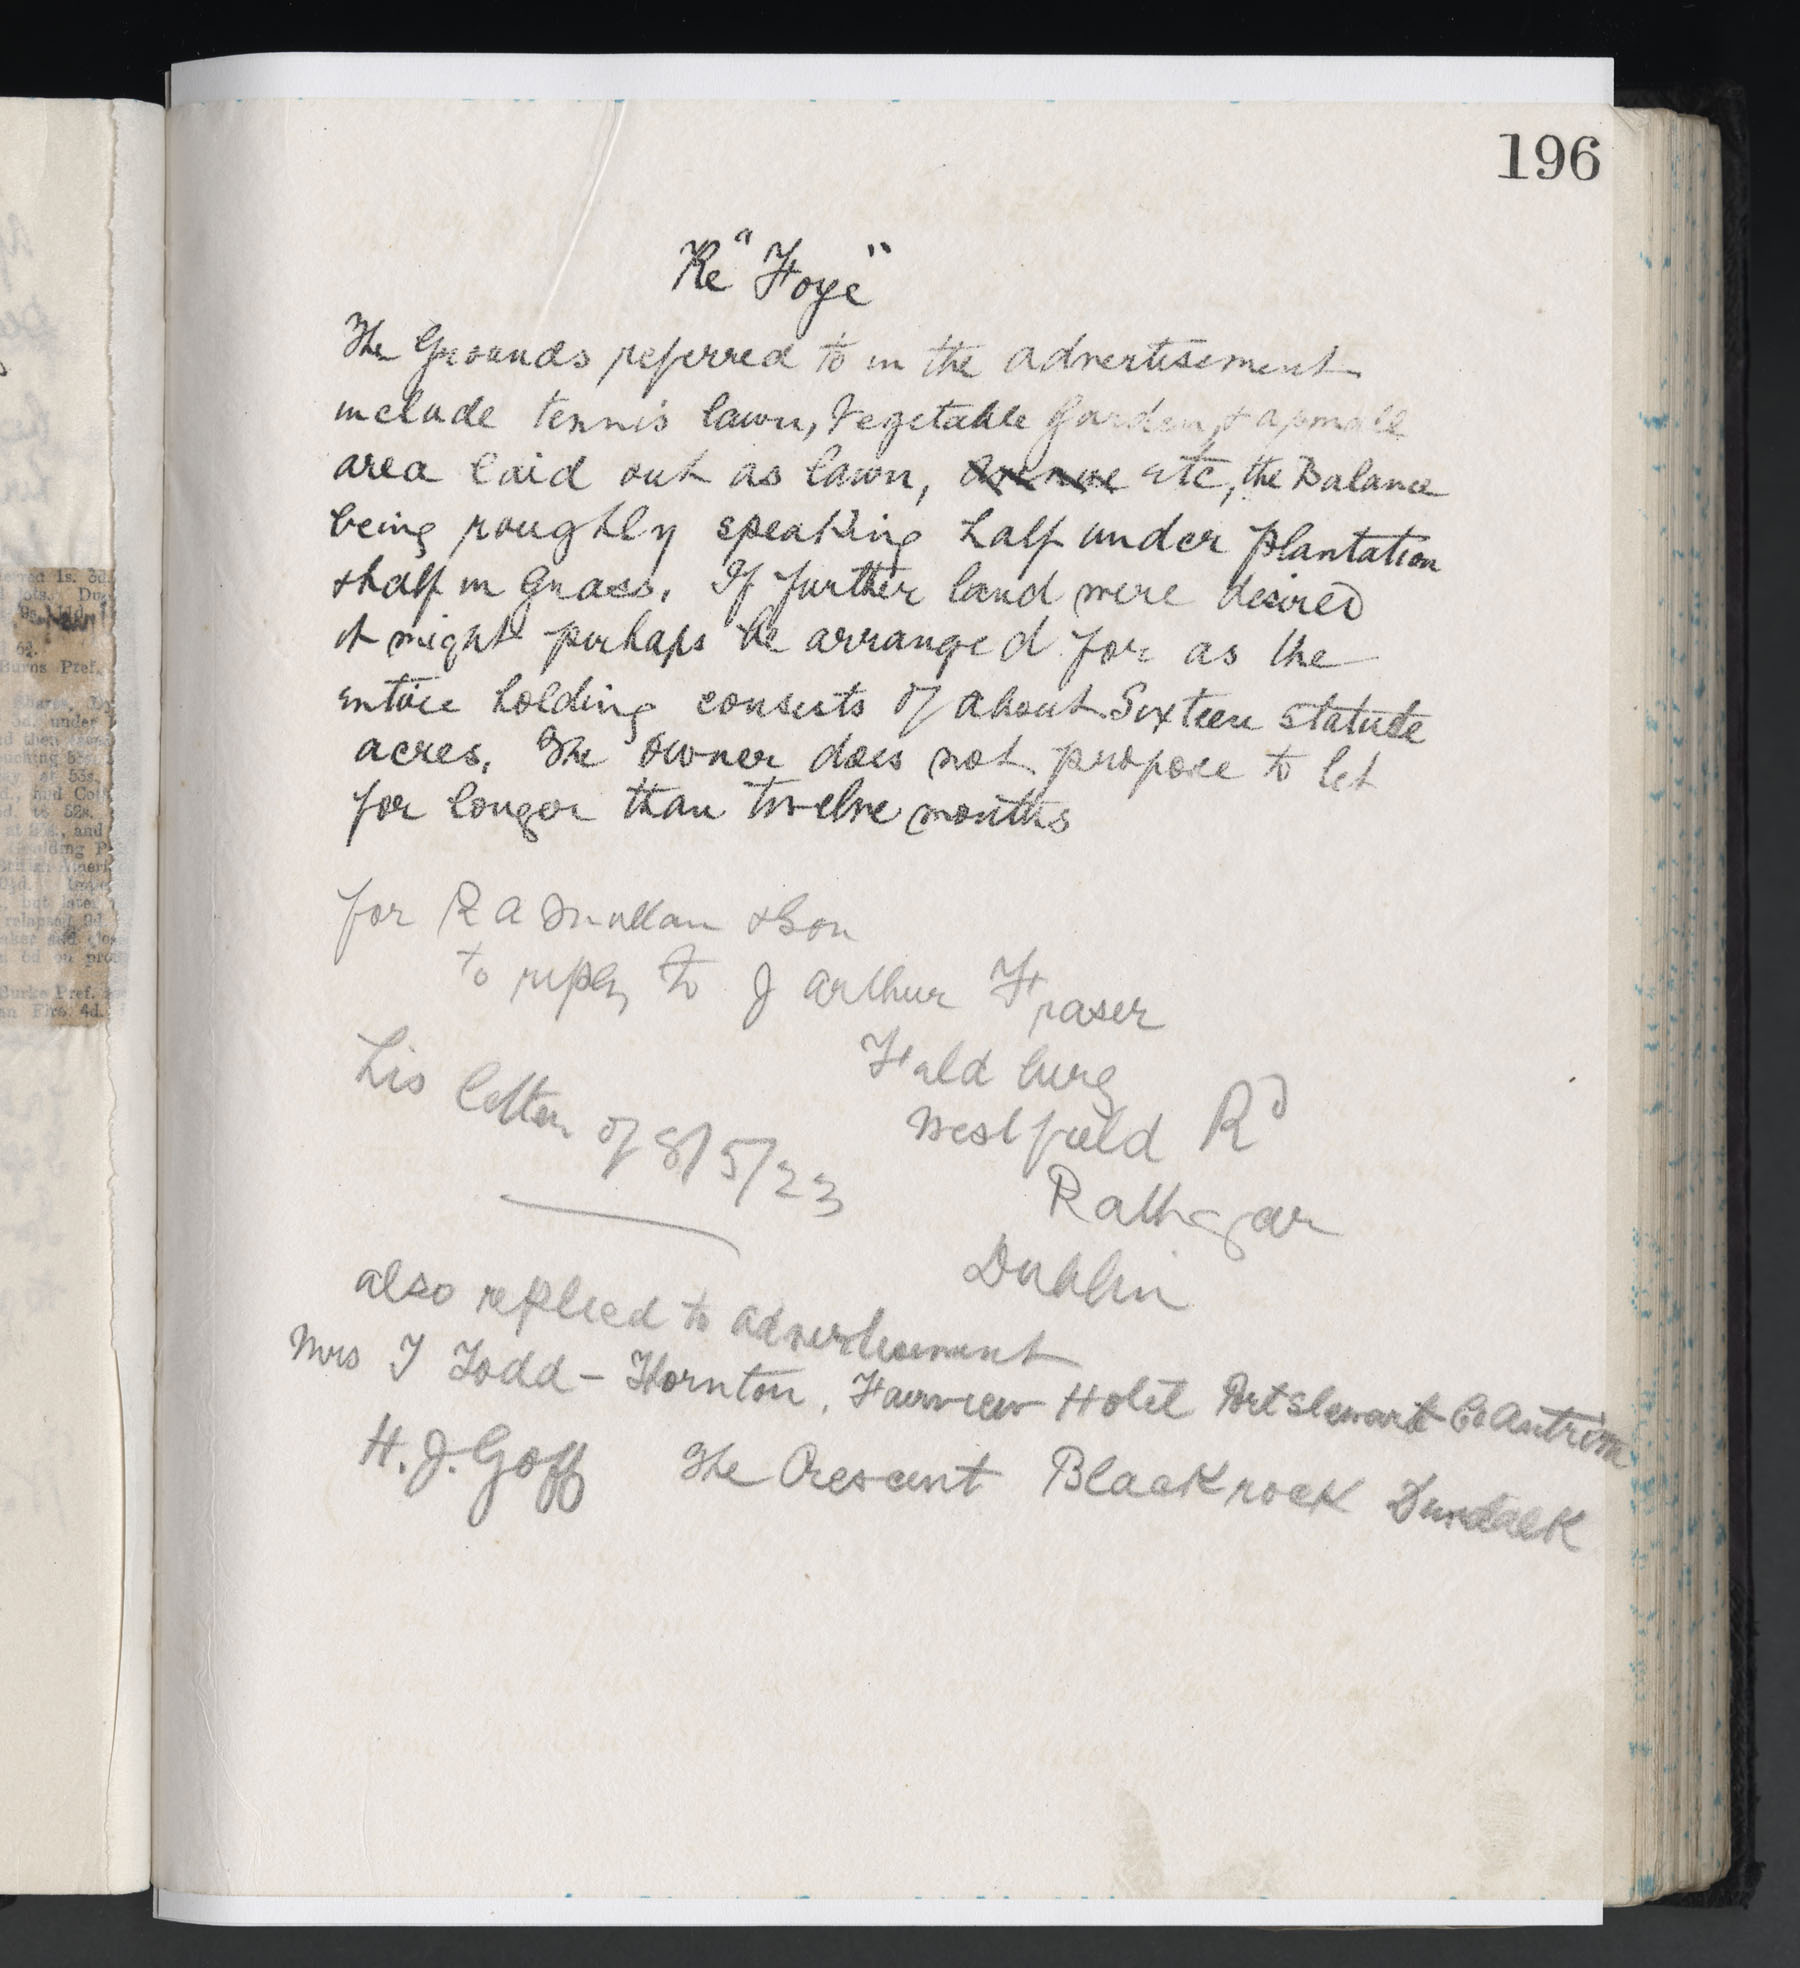 196
Re "Foye"
The Grounds referred to in the advertisement
include tennis lawn, Vegetable Garden, & a small
area laid out as lawn, avenue etc, the Balance
being roughly speaking half under plantation
& half in Grass. If further land were desired
it might perhaps be arranged for as the
entire holding consists of about Sixteen statute
acres. The owner does not propose to let
for longer than twelve months
for R A Mullan & Son
to reply to J Arthur Fraser
Westfield Rd
Rathgar
Dublin
his letter of 8/5/23
also replied to advertisement
Mrs J Todd-Thornton, Fairview Hotel Portstewart Co Antrim
H. J. Goff The Crescent Blackrock Dundalk
1s. 3d.
Burns Pref.
Shares,
5d. under
at 53s.
to 52s.
and
but later
relapsed
6d on
Burke Pref.
4d.